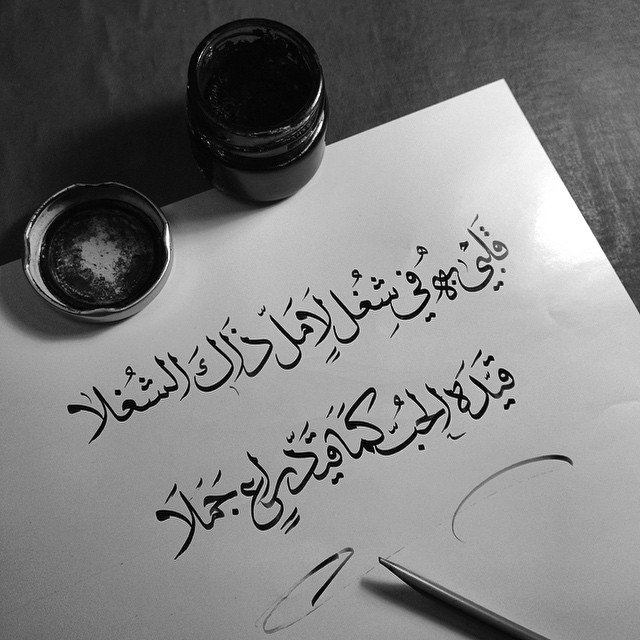 قَلبي بِهِ في شِغُلٍ لا مَلَّ ذَاكَ الشُغلا
قَيَّدَهُ الحُبُّ كَمَا قَيَّدَ رَاعٍ جَمَلَا